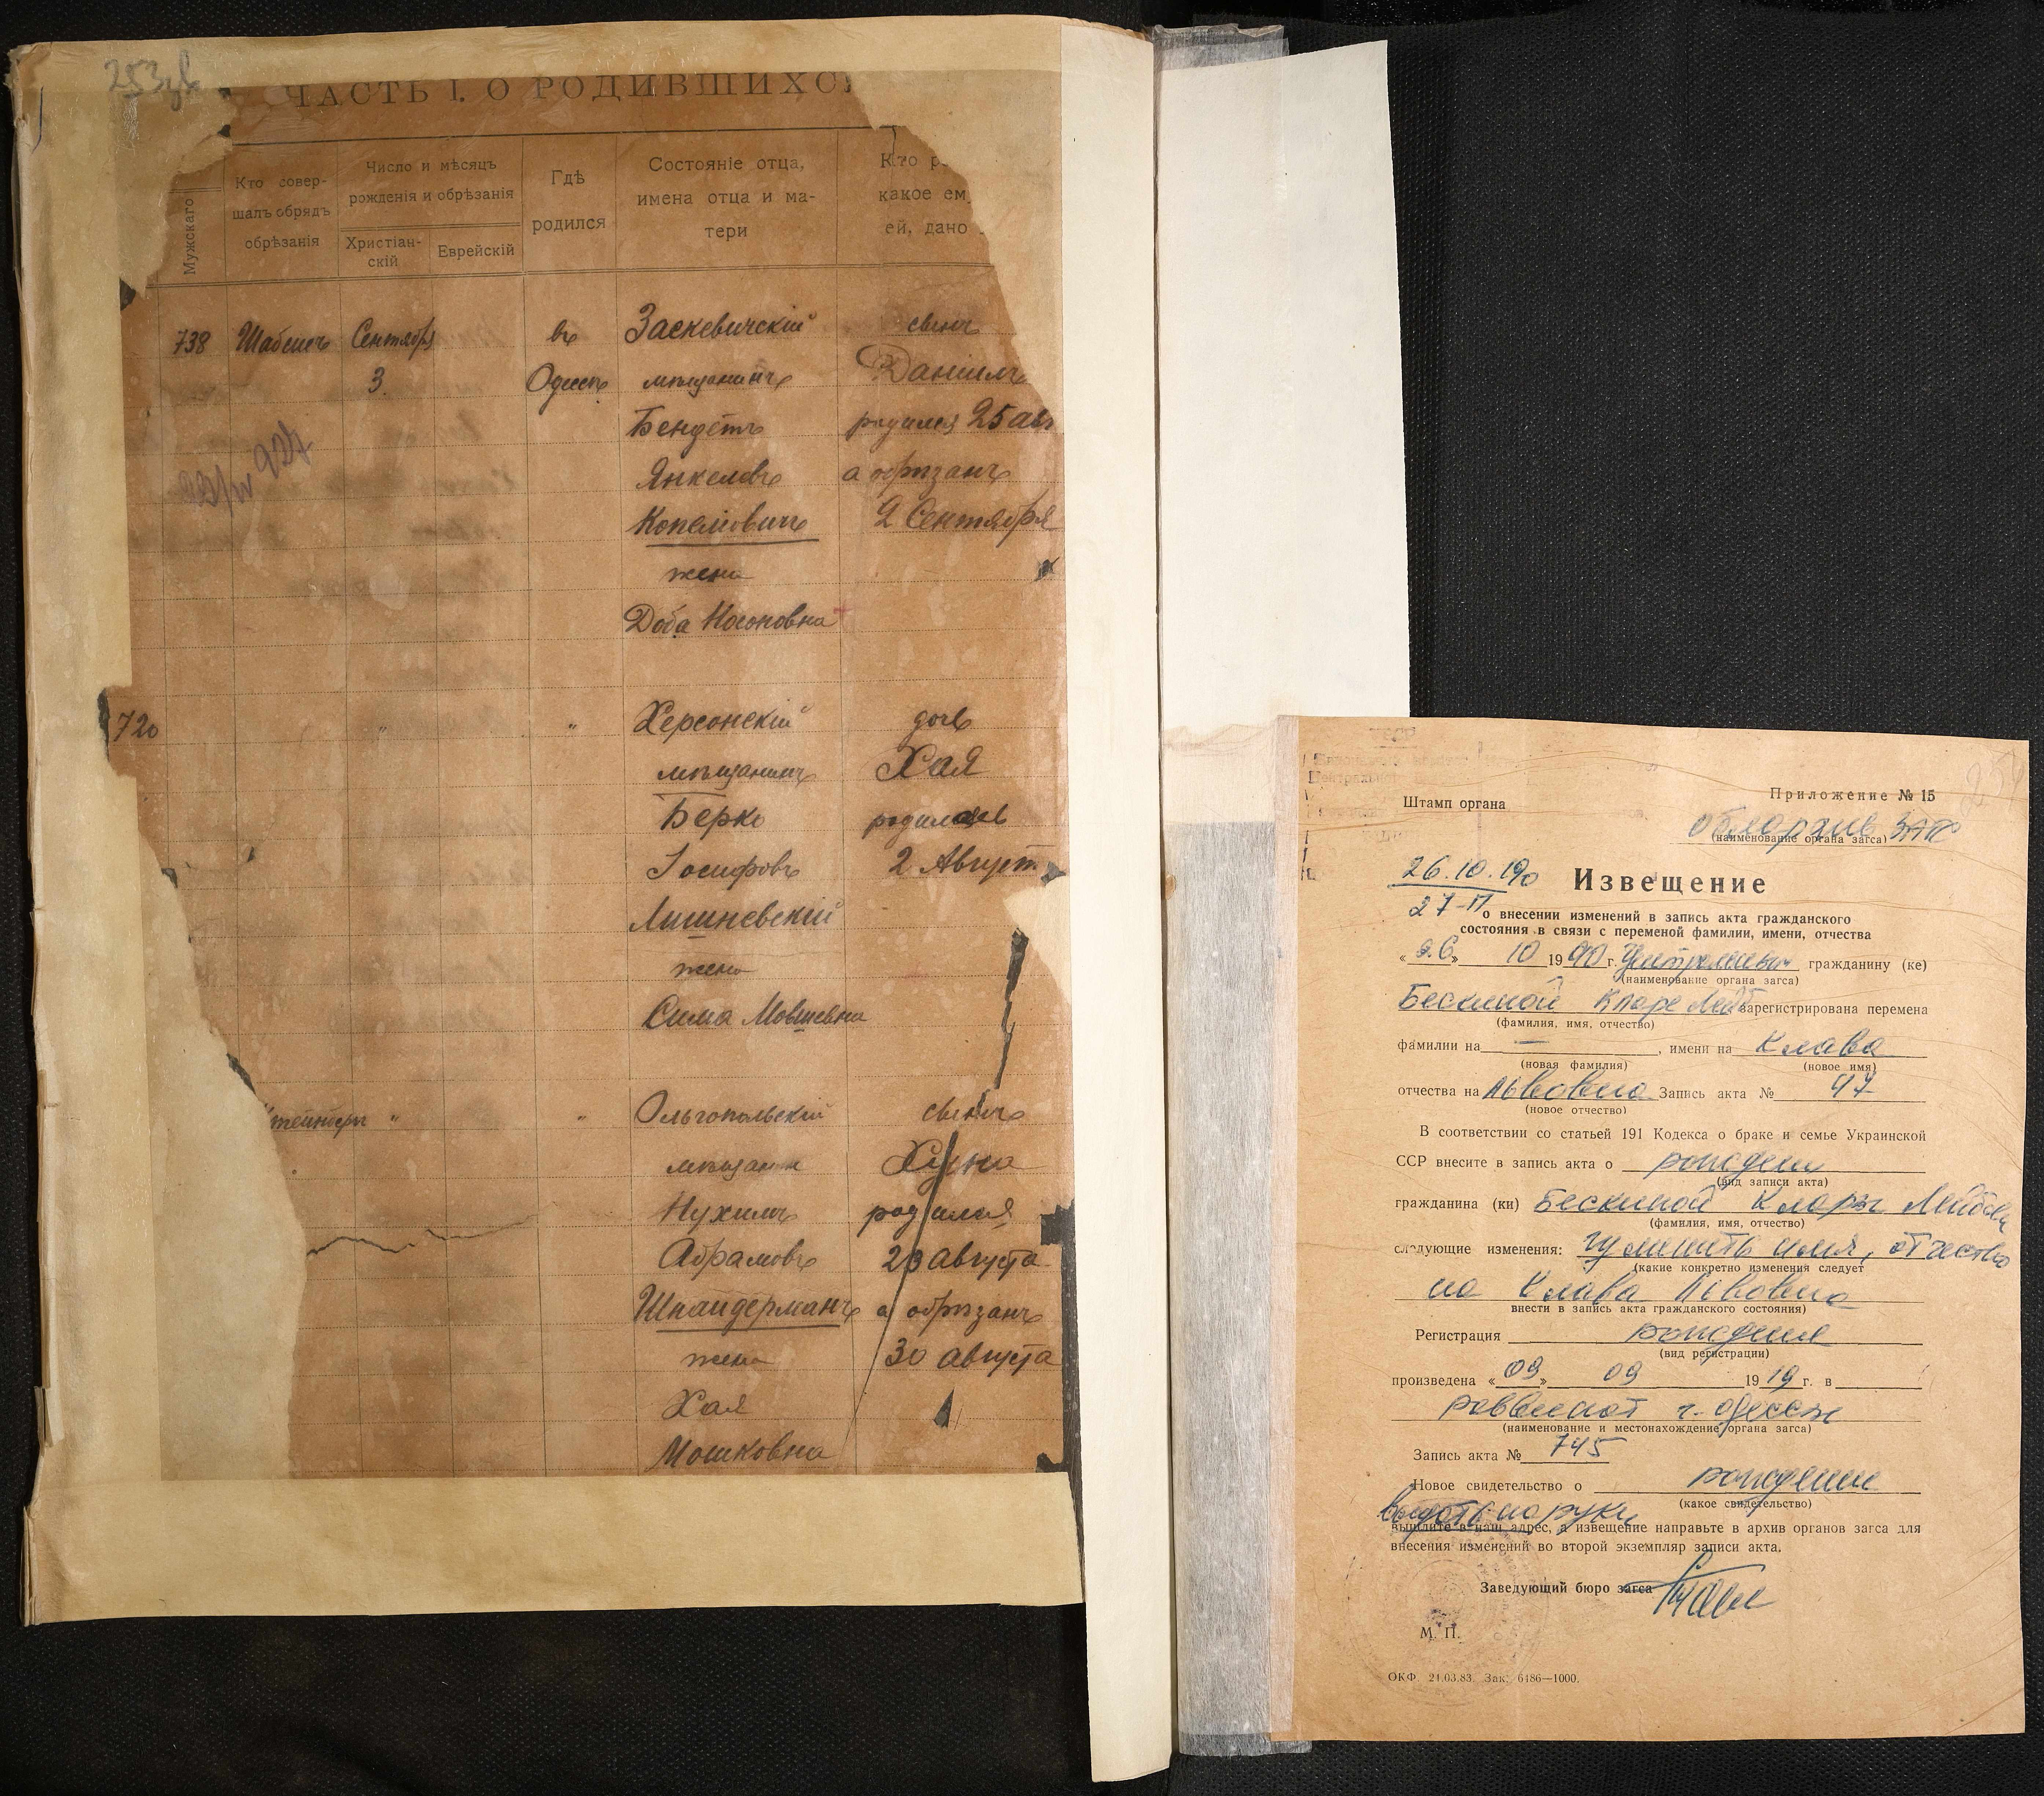 ЧАСТЬ I. О РОДИВШИХС
Мужскаго
Кто совер-
шалъ обрядъ
обрѣзанія
Число и мѣсяцъ
рожденія и обрѣзанія
Христіан-
скій
Еврейскій
Гдѣ
родился
Состояніе отца,
имена отца и ма-
тери
Кто р
какое ем
ей, дано
738
Сентябр
3
въ
Одессѣ
Заскевичскій
мѣщанинъ
Бендетъ
Янкелевъ
Копелiовичъ
жена
Доба Носоновна
сынъ
Даніилъ
родился 25 авг
а обрѣзанъ
2 Сентября
720
"
"
Херсонскій
мѣщанинъ
Берко
Іосифовъ
Лишневскій
жена
Сима Мовшевна
дочь
Хая
родилась
2 Август
"
"
Ольгопольскій
мѣщанин
Нухимъ
Абрамовъ
Шнайдерманъ
жена
Хая
Мошковна
сынъ
родился
23 августа
а обрѣзанъ
30 августа
Штамп органа
Приложение № 15
обл архив ЗАГС
(наименование органа загса)
26.10.190
27-П
Извещение
о внесении изменений в запись акта гражданского
состояния в связи с переменой фамилии, имени, отчества
«26» 10 1990 г. гражданину (ке)
(наименование органа загса)
Бескиной Кларе Лейб зарегистрирована перемена
(фамилия, имя, отчество)
фамилии на — , имени на Клава
(новая фамилия) (новое имя)
отчества на Львовна Запись акта № 47
(новое отчество)
В соответствии со статьей 191 Кодекса о браке и семье Украинской
ССР внесите в запись акта о рождении
(вид записи акта)
гражданина (ки) Бескиной Клары Лейбовн
(фамилия, имя, отчество)
следующие изменения: изменить имя, отчество
(какие конкретно изменения следует
на Клава Львовна
внести в запись акта гражданского состояния)
Регистрация рождения
(вид регистрации)
произведена «09» 09 1919 г. в
раввинат г. Одессы
(наименование и местонахождение органа загса)
Запись акта № 745
Новое свидетельство о рождении
(какое свидетельство)
выдать на руки
вышлите в наш адрес, а извещение направьте в архив органов загса для
внесения изменений во второй экземпляр записи акта.
Заведующий бюро загса
М. П.
ОКФ. 21.03.83. Зак. 6186—1000.